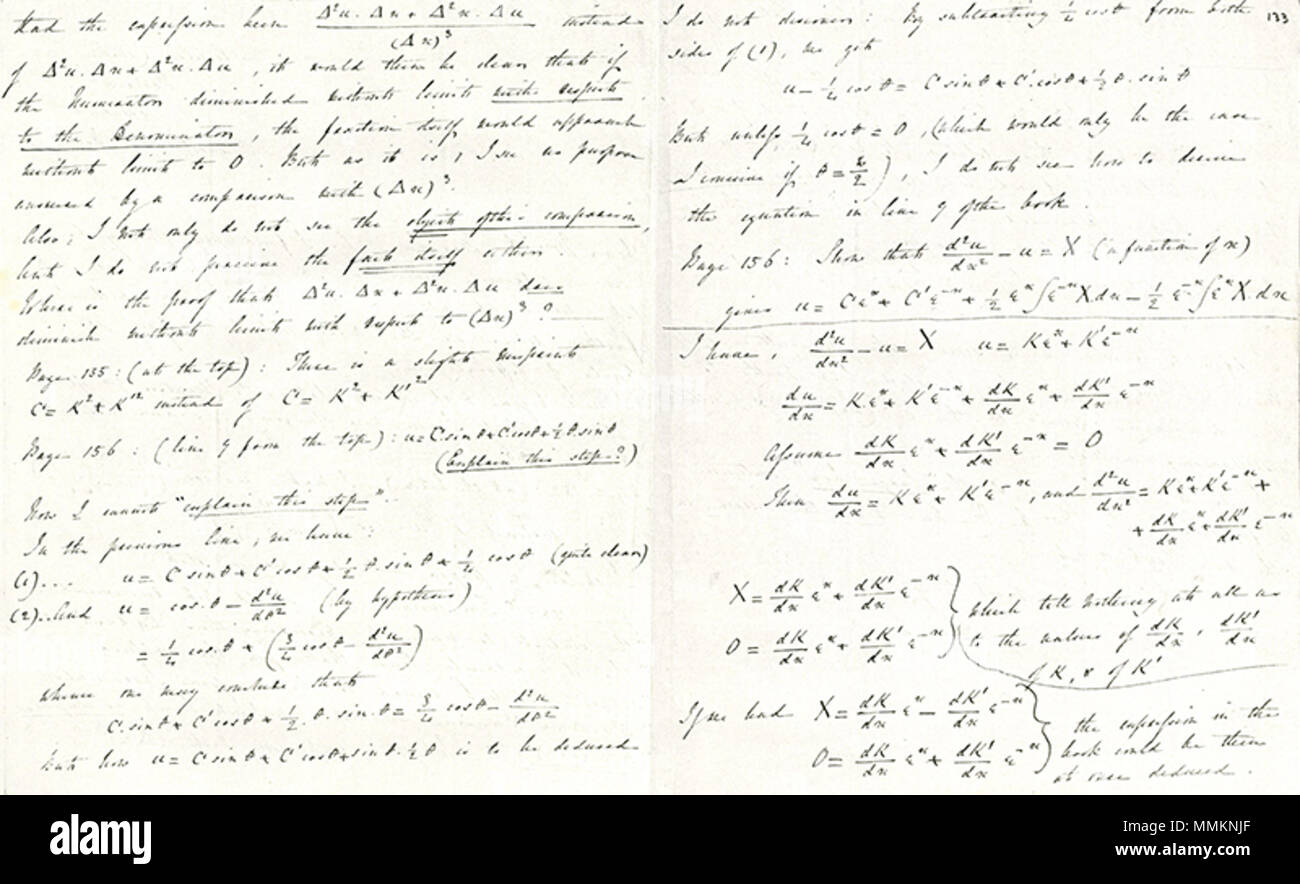 had the expression been Δ²u.Δx + Δ²x.Δu / (Δx)³ instead
of Δ²u.Δx + Δ²x.Δu, it would then be clear that if
the Numerator diminished without limit with respect
to the Denominator, the fraction itself would approach
without limit to 0. But as it is, I see no purpose
answered by a comparison with (Δx)³.
Also; I not only do not see the object of this comparison,
but I do not perceive the fact itself either.
Where is the proof that Δ²u.Δx + Δ²x.Δu does
diminish without limit with respect to (Δx)³?
Page 135: (at the top): There is a slight misprint
C = K² + K'² instead of C = K² + K'²
Page 156: (line 9 from the top): u = C.sin θ + C'cos θ + ½ θ.sin θ
(Explain this step?)
Now I cannot "explain this step".
In the previous line, we have:
(1)... u = C sin θ + C'cos θ + ½ θ.sin θ + ¼ cos θ (quite clear)
(2)..And u = cos.θ − d²u/dθ² (by hypothesis)
= ¼ cos.θ + (¾ cos θ − d²u/dθ²)
whence one may conclude that
C.sin θ + C'cos θ + ½.θ.sin.θ = ¾ cos θ − d²u/dθ²
But how u = C sin θ + C'cos θ + sin θ.½ θ is to be deduced
133
I do not discover: By subtracting ¼ cos θ from both
sides of (1), we get
u − ¼ cos θ = C sin θ + C'.cos θ + ½ θ.sin θ
But unless ¼ cos θ = 0, (which would only be the case
I conceive if θ = π/2), I do not see how to derive
the equation in line 9 of the book.
Page 156: Show that d²u/dx² − u = X (a function of x)
gives u = Cεˣ + C'ε⁻ˣ + ½ εˣ∫ε⁻ˣX.dx − ½ ε⁻ˣ∫εˣX.dx
I have, d²u/dx² − u = X u = Kεˣ + K'ε⁻ˣ
du/dx = Kεˣ + K'ε⁻ˣ + dK/dx εˣ + dK'/dx ε⁻ˣ
Assume dK/dx εˣ + dK'/dx ε⁻ˣ = 0
Then du/dx = Kεˣ + K'ε⁻ˣ, and d²u/dx² = Kεˣ + K'ε⁻ˣ +
+ dK/dx εˣ + dK'/dx ε⁻ˣ
X = dK/dx εˣ + dK'/dx ε⁻ˣ
0 = dK/dx εˣ + dK'/dx ε⁻ˣ
which tell nothing at all as
to the values of dK/dx, dK'/dx
of K, & of K'
If we had X = dK/dx εˣ − dK'/dx ε⁻ˣ
0 = dK/dx εˣ + dK'/dx ε⁻ˣ
the expression in the
book could be then
at once deduced.
alamy
a
alamy
Image ID: MMKNJF
www.alamy.com